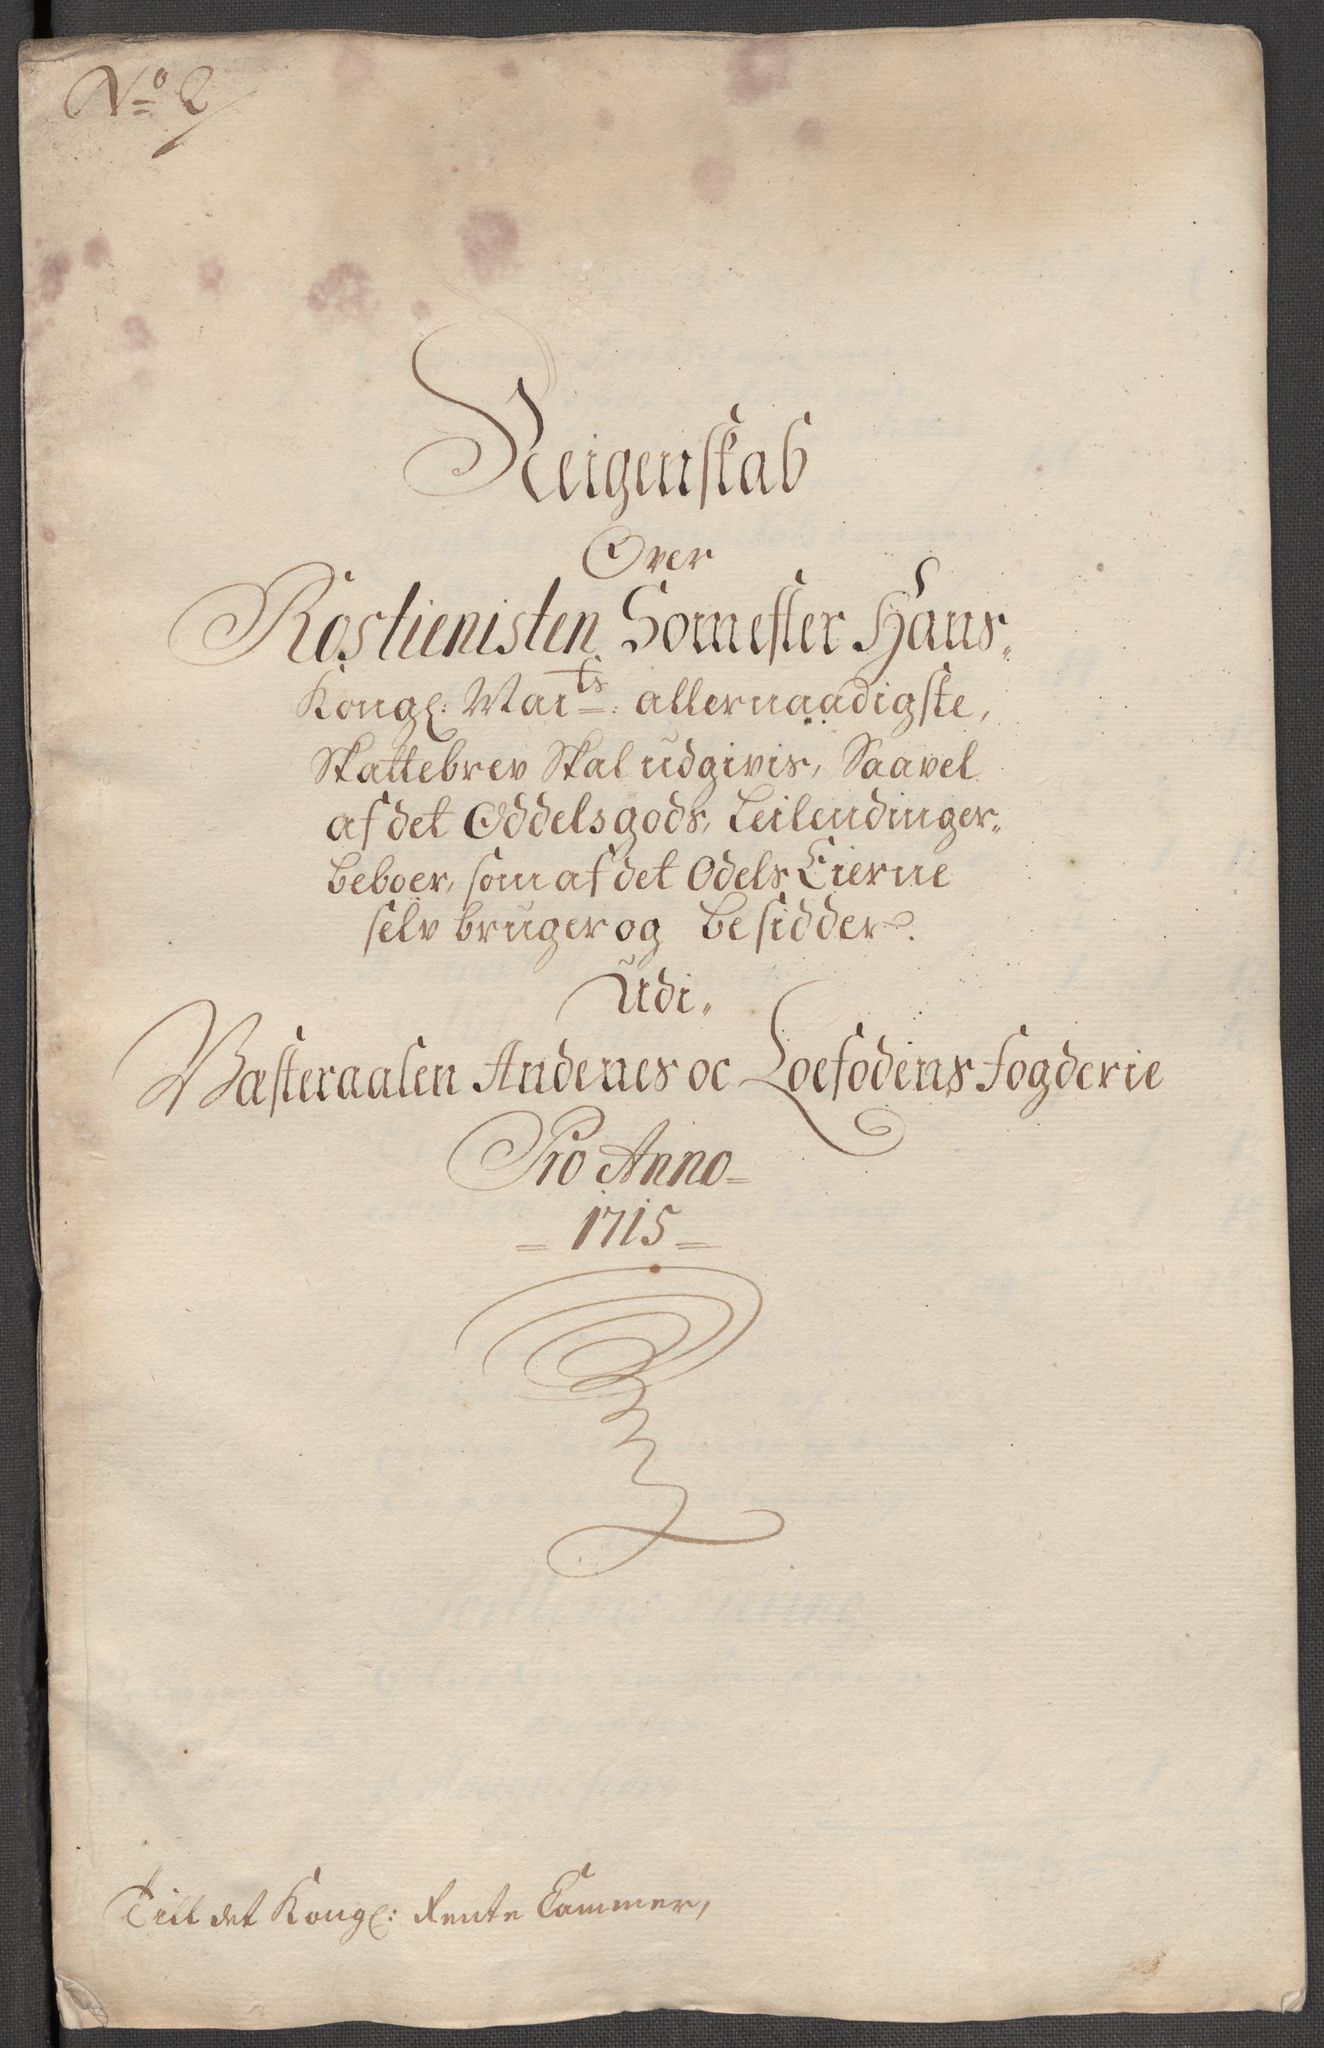 No 2
Reigenskab
Over
Rostienisten Somefter Hans
Kongl: Mai:ts allernaadigste,
Skattebrev Skal udgivis, Saavel
af det Oddelsgods, Leilendinger
beboer, som af det Odels Eierne
selv bruger og besidder.
Udi
Væsteraalen Andenes oc Loefodens fogderie
Pro Anno
1715
Till det Kongl: Rente Cammer,